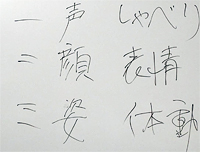 一 声 しゃべり
二 顔 表情
三 姿 体動